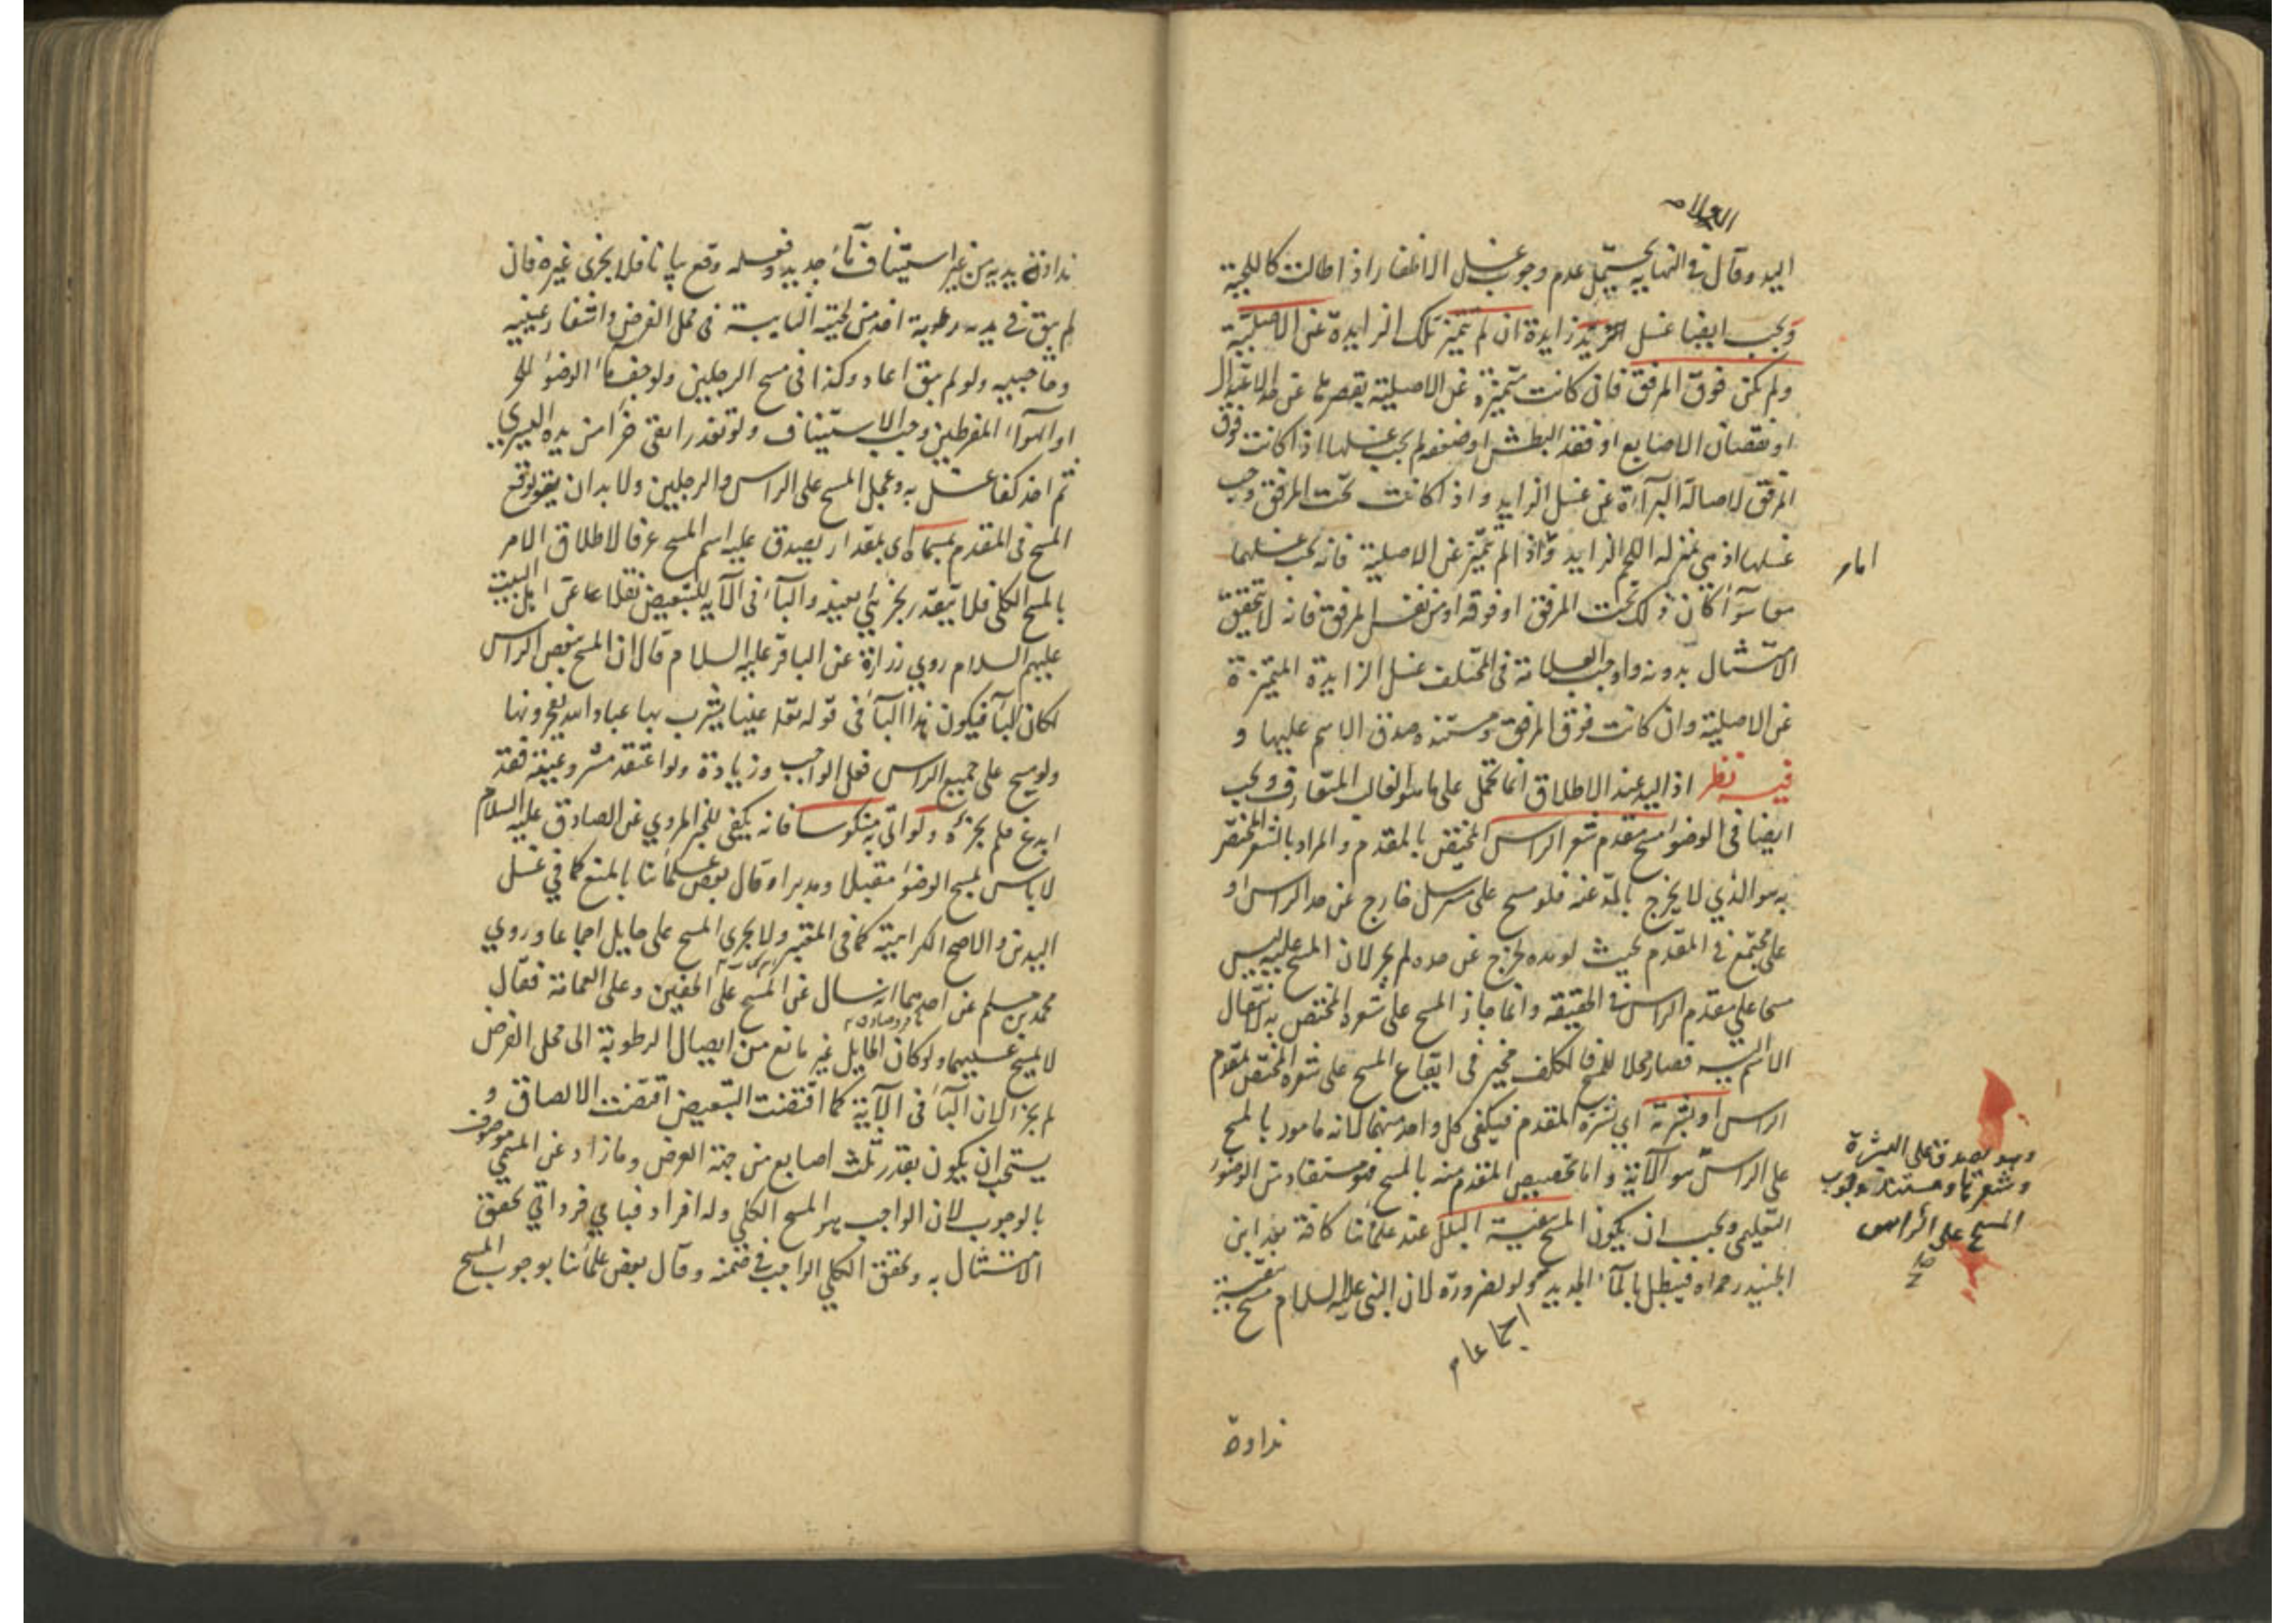 العلامه
اليد وقال في النهايه يحتمل عدم وجوب غسل الاظفار اذا طالت كاللحية
ويجب ايضا غسل يد زايدة ان لم تتميز تلك الزايدة عن الاصلية
ولم تكن فوق المرفق فان كانت متميزة عن الاصلية بقصرها عن حد الاعتدال
او نقصان الاصابع او فقد البطش او ضعفه لم يجب غسلها اذا كانت فوق
المرفق لاصالة البرآءة عن غسل الزايد واذا كانت تحت المرفق وجب
غسلها اذ هي بمنزلة اللحم الزايد واذا لم تتميز عن الاصلية فانه يجب غسلهما
اما
معا سوآء كان ذلك تحت المرفق او فوقه او من نفس المرفق فانه لا يتحقق
الامتثال بدونه واوجب العلامة في المختلف غسل الزايدة المتميزة
عن الاصلية وان كانت فوق المرفق ومستنده صدق الاسم عليها و
فيه نظر اذ اليد عند الاطلاق انما تحمل على ما هو الغالب المتعارف ويجب
ايضا في الوضوء مسح مقدم شعر الراس المختص بالمقدم والمراد بالشعر المختص
به هو الذي لا يخرج بالمد عنه فلو مسح على مسترسل خارج عن حد الراس او
على مجتمع في المقدم بحيث لو مده لخرج عن حده لم يجز لان المسح عليه ليس
مسحا على مقدم الراس في الحقيقه وانما جاز المسح على شعره المختص به لانتقال
الاسم اليه فصار محلا للمسح فالمكلف مخير في ايقاع المسح على شعره المختص بمقدم
الراس او بشرته اي بشرة المقدم فيكفي كل واحد منهما لانه مامور بالمسح
على الراس هو الآية واما تخصيص المقدم منه بالمسح فهو مستفاد من الوضوء
وهو يصدق على البشرة
وشعرها ومستند وجوب
المسح على الراس
صح
التعليمي ويجب ان يكون المسح ببقية البلل عند علمائنا كافة بعد ابن
الجنيد رحمه الله فيبطل بالمآء الجديد ولو لضرورة لان النبي عليه السلام مسح ببقية
اجماعا
نداوة
نداوة يديه من غير استيناف مآء جديد وفعله وقع بيانا فلا يجزى غيره فان
لم يبق في يديه رطوبة اخذ من لحيته النابتة في محل الفرض واشفار عينيه
وحاجبيه ولو لم يبق اعاد وكذا في مسح الرجلين ولو جف مآء الوضوء للحر
او الهوآء المفرطين وجب الاستيناف ولو تعذر ابقى جزءا من يده اليسرى
ثم اخذ كفا غسل به وعجل المسح على الراس والرجلين ولا بد ان يقع
المسح في المقدم بمسماه اى بمقدار يصدق عليه اسم المسح عرفا لاطلاق الامر
بالمسح الكلي فلا يتقدر بجزئي بعينه والبآء في الآيه للتبعيض نقلا عن اهل البيت
عليهم السلام روي زرارة عن الباقر عليه السلام قال ان المسح ببعض الراس
لمكان البآء فيكون كذا البآء في قوله تعالى عينا يشرب بها عباد الله يفجرونها
ولو مسح على جميع الراس فعل الواجب وزيادة ولو اعتقد مشروعيته فقد
ابدع فلم يجزه ولو اتى به منكوسا فانه يكفي للخبر المروي عن الصادق عليه السلام
لا باس بمسح الوضوء مقبلا ومدبرا وقال بعض علمائنا بالمنع كما في غسل
اليدين والاصح الكراهية كما في المعتبر ولا يجزى المسح على حايل اجماعا وروي
محمد بن مسلم عن احدهما انه سال عن المسح على الخفين وعلى العمامة فقال
لا يمسح عليهما ولو كان الحايل غير مانع من ايصال الرطوبة الى محل الفرض
لم يجز لان البآء في الآية كما اقتضت التبعيض اقتضت الالصاق و
يستحب ان يكون بقدر ثلث اصابع من جهة العرض وما زاد عن المسمي موصوف
بالوجوب لان الواجب هو المسح الكلي وله افراد فباي فرد اتي تحقق
الامتثال به وتحقق الكلي الواجب في ضمنه وقال بعض علمائنا بوجوب المسح